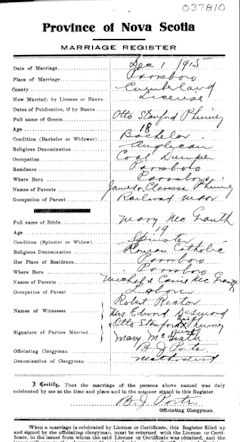 037810
Province of Nova Scotia
MARRIAGE REGISTER
Date of Marriage, Dec 1, 1915
Place of Marriage, Parrsboro
County Cumberland
How Married; by License or Banns License
Dates of Publication, if by Banns
Full Name of Groom Otto Stanford
Age 18
Condition (Bachelor or Widower) Bachelor
Religious Denomination Anglican
Occupation Coal Dumper
Residence Parrsboro
Where Born Parrsboro
Names of Parents James &
Occupation of Parent Railroad
Full name of Bride Mary
Age 19
Condition (Spinster or Widow) Spinster
Religious Denomination Roman Catholic
Her Place of Residence Parrsboro
Where Born Parrsboro
Names of Parents
Occupation of Parent
Names of Witnesses Robert Rector
Mrs Edward Desmond
Signature of Parties Married Otto Stanford
Mary
Officiating Clergyman
Denomination Methodist
I Certify, That the marriage of the persons above named was duly
celebrated by me at the time and place and in the manner stated in this Register.
Officiating Clergyman.
When a marriage is celebrated by License or Certificate, this Register filled up
and signed by the officiating clergyman, must be returned with the License or Certificate,
to the issuer from whom the said License or Certificate was obtained, and the